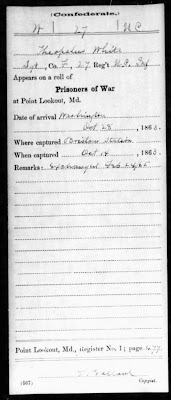 (Confederate.)
W 27 N C
Theopolus White
Sgt, Co. F, 27 Reg't N.C. Inf
Appears on a roll of
Prisoners of War
at Point Lookout, Md.
Date of arrival Washington
Oct 28, 1863.
Where captured Bristow Station
When captured Oct 14, 1863.
Remarks: Exchanged Feb 24, 65
Point Lookout, Md., Register No. 1; page 477
(667) Copyist.